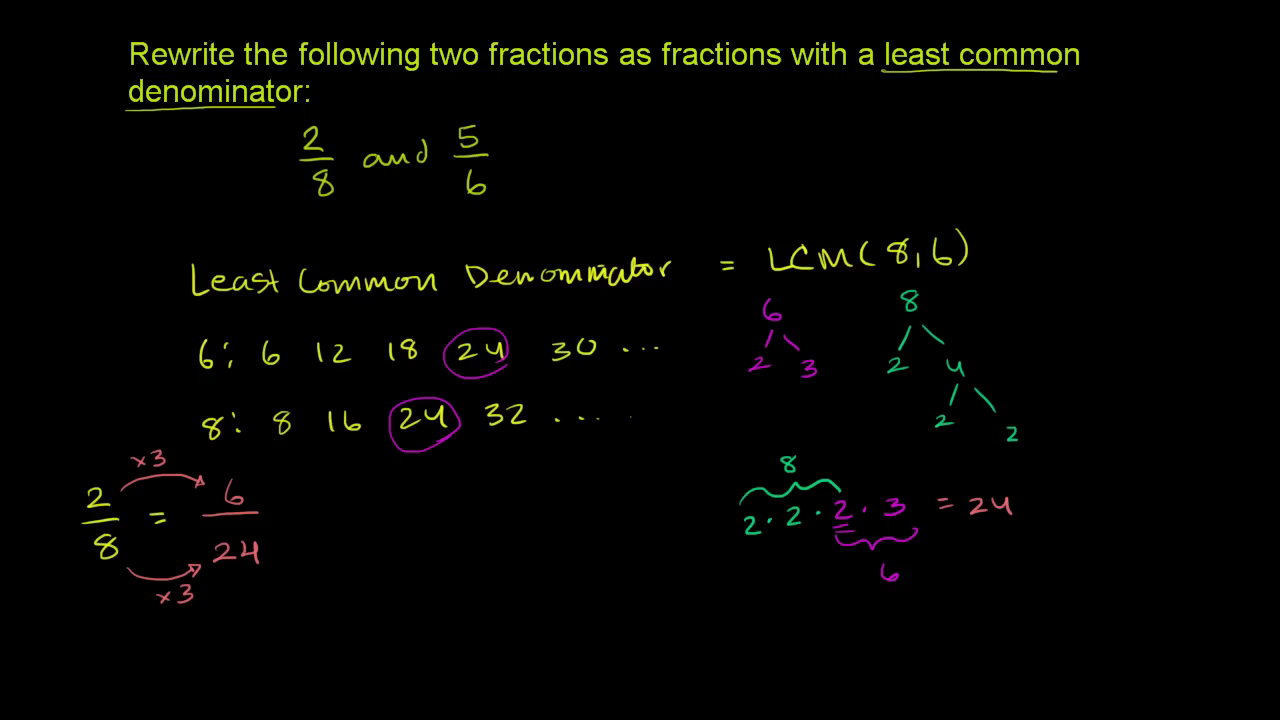 Rewrite the following two fractions as fractions with a least common
denominator:
2/8 and 5/6
Least Common Denominator = LCM(8,6)
6: 6 12 18 24 30 ...
8: 8 16 24 32 ....
6
2 3
8
2 4
2 2
×3
2/8 = 6/24
×3
8
2·2·2·3 = 24
6